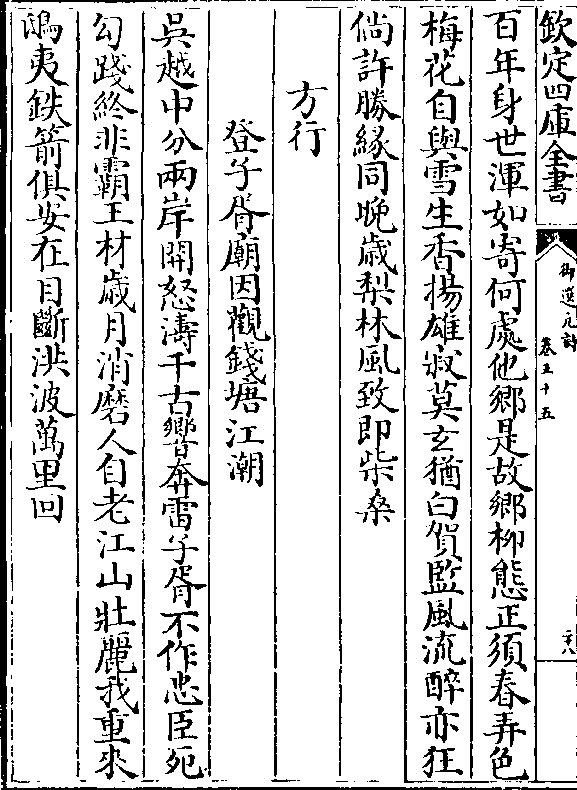 欽定四庫全書
御選元詩
卷五十五
六
百年身世渾如寄何處他鄉是故鄉柳態正須春弄色
梅花自與雪生香揚雄寂莫玄猶白賀監風流醉亦狂
倘許勝緣同晚歲梨林風致即柴桑
方行
登子胥廟因觀錢塘江潮
吳越中分兩岸開怒濤千古響奔雷子胥不作忠臣死
勾踐終非霸王材歲月消磨人自老江山壯麗我重來
鴟夷鉄箭俱安在目斷洪波萬里回